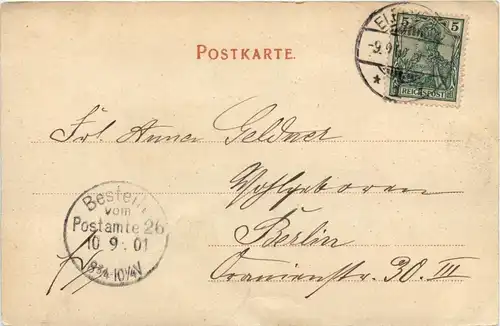 POSTKARTE.
5 5
REICHSPOST
-9.9.01
Frl. Anna Geldner
Wohlgeboren
Berlin
Oranienstr. 30. III
Bestellt
vom
Postamte 26
10 9. 01
8¾-10¼V